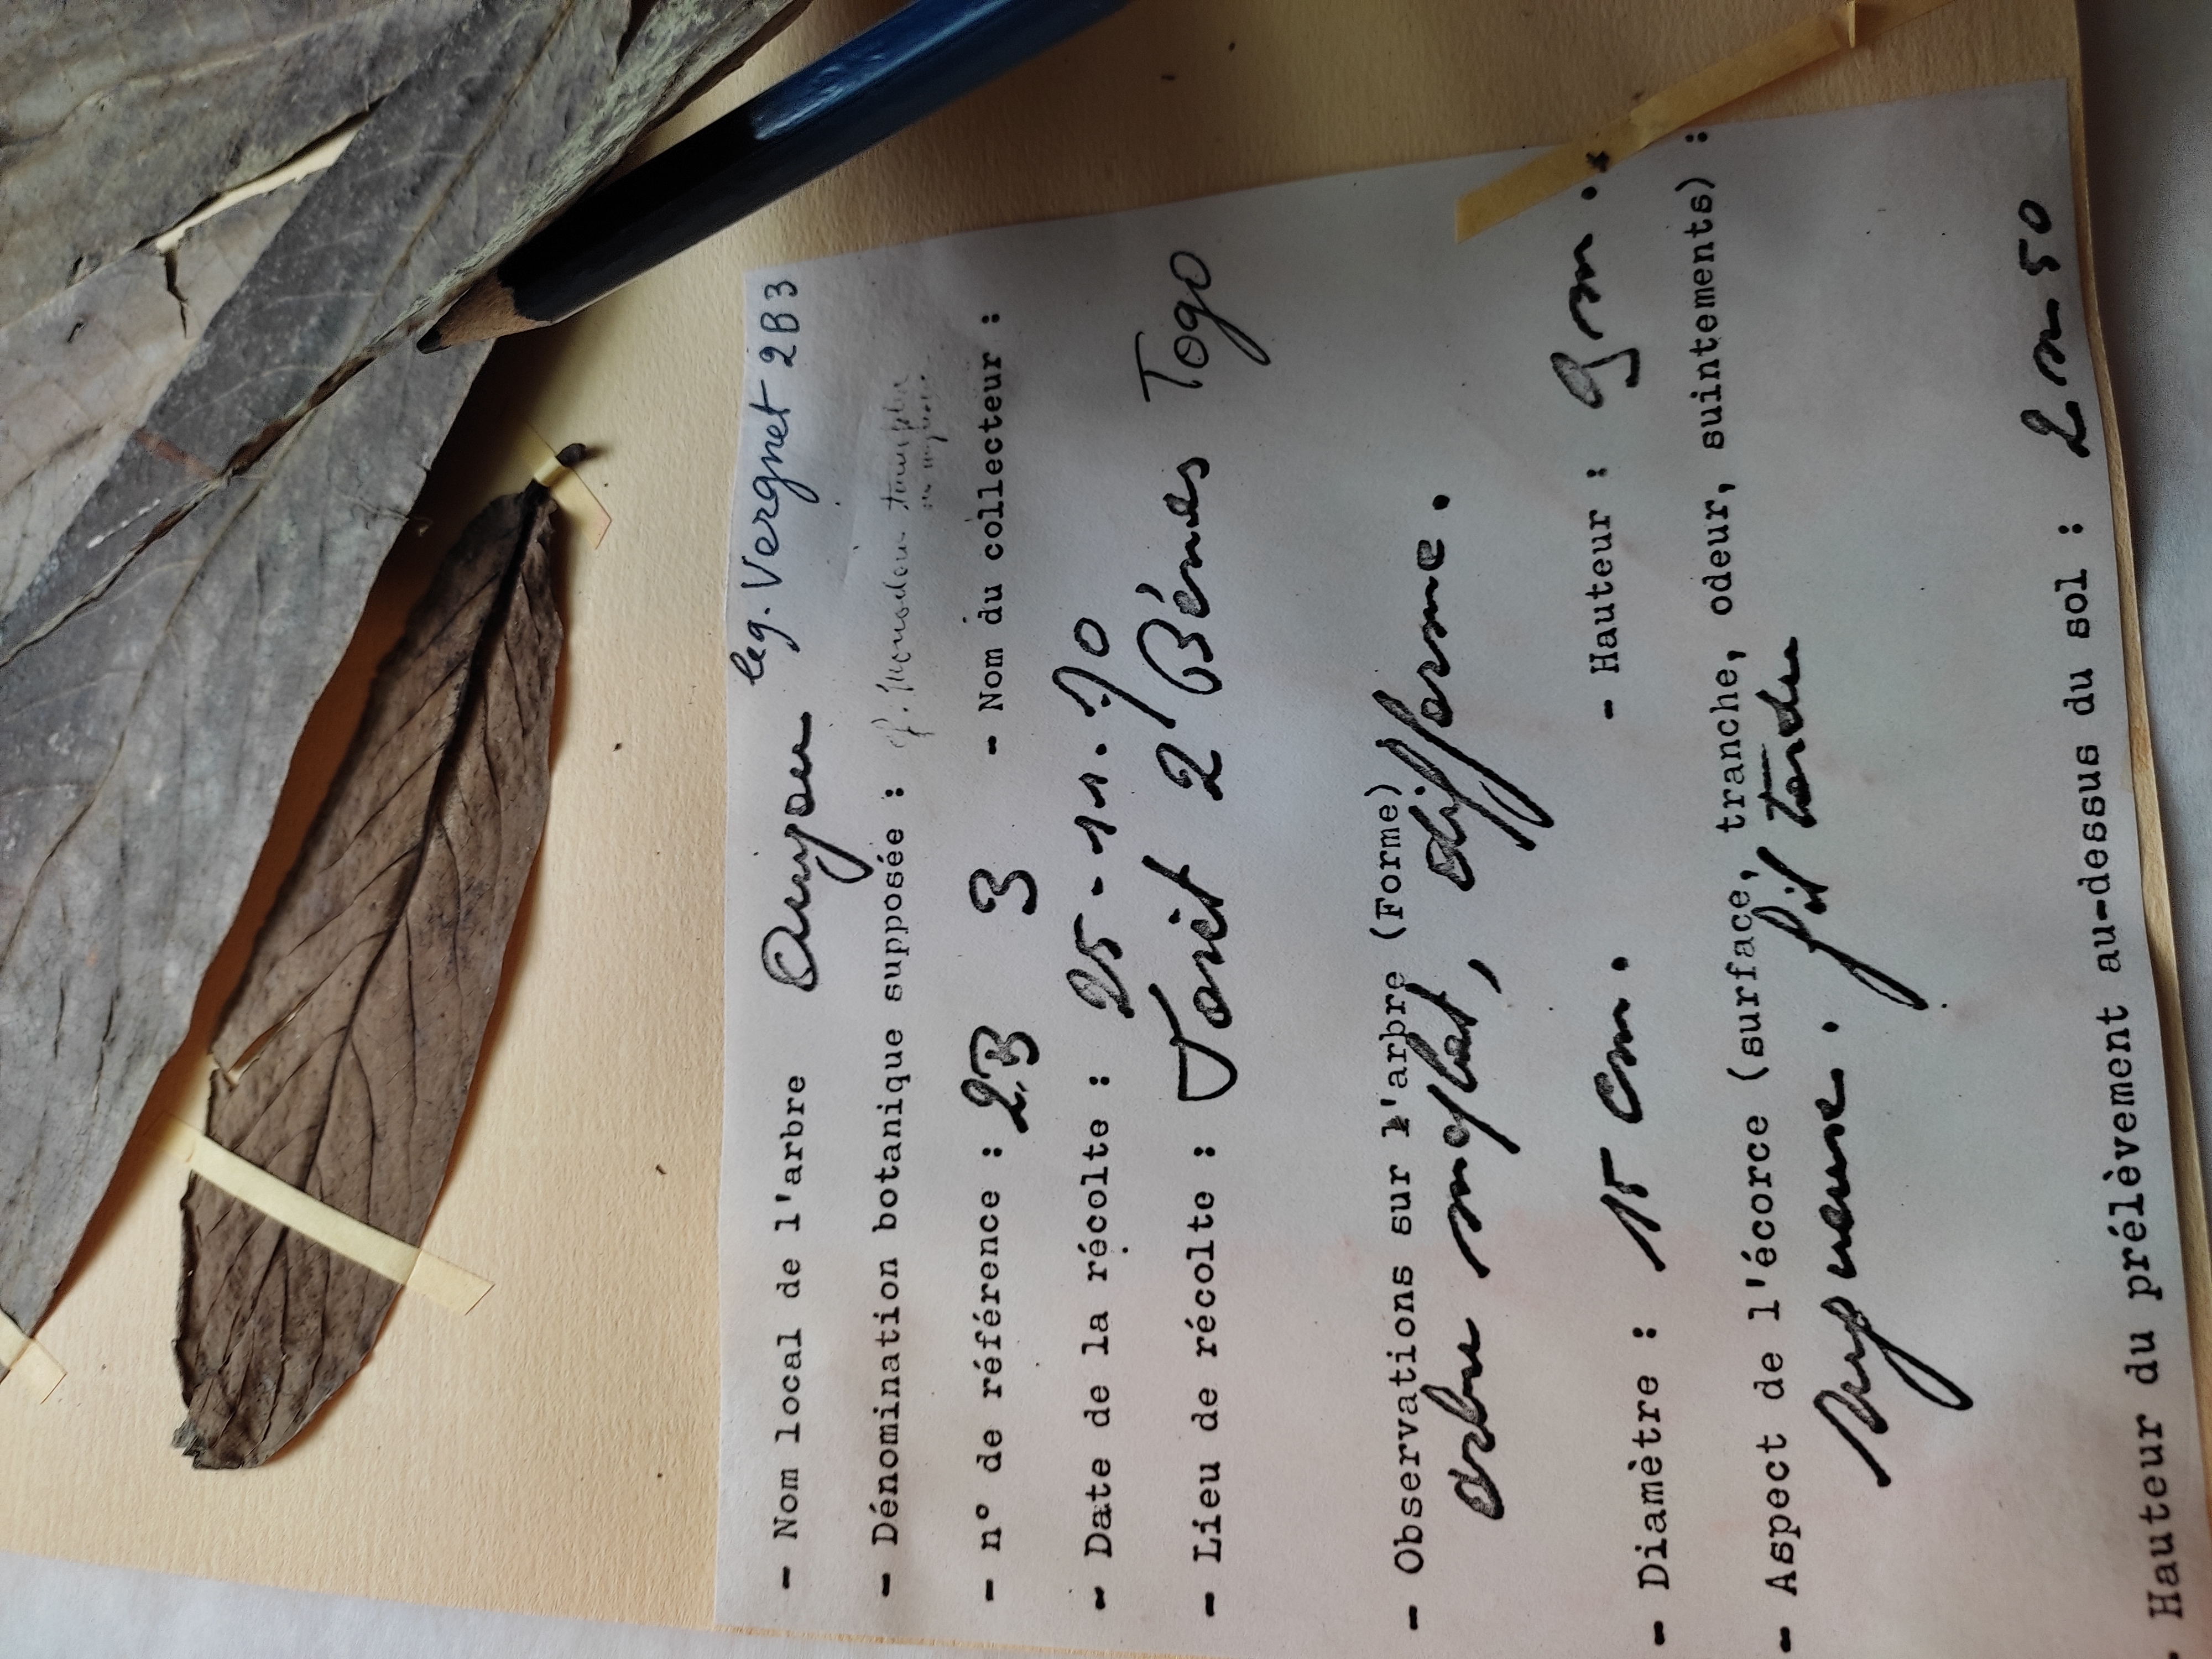 leg. Vergnet 2B3
- Nom local de l'arbre
- Dénomination botanique supposée :
- n° de référence : 2B 3 - Nom du collecteur :
- Date de la récolte : 25-11.70
- Lieu de récolte : Forêt 2 Bénes Togo
- Observations sur l'arbre (Forme)
arbre méplat, difforme.
- Diamètre : 15 cm. - Hauteur : 9 m.
- Aspect de l'écorce (surface, tranche, odeur, suintements) :
Rugueuse. tendre
- Hauteur du prélèvement au-dessus du sol : 2 m 50